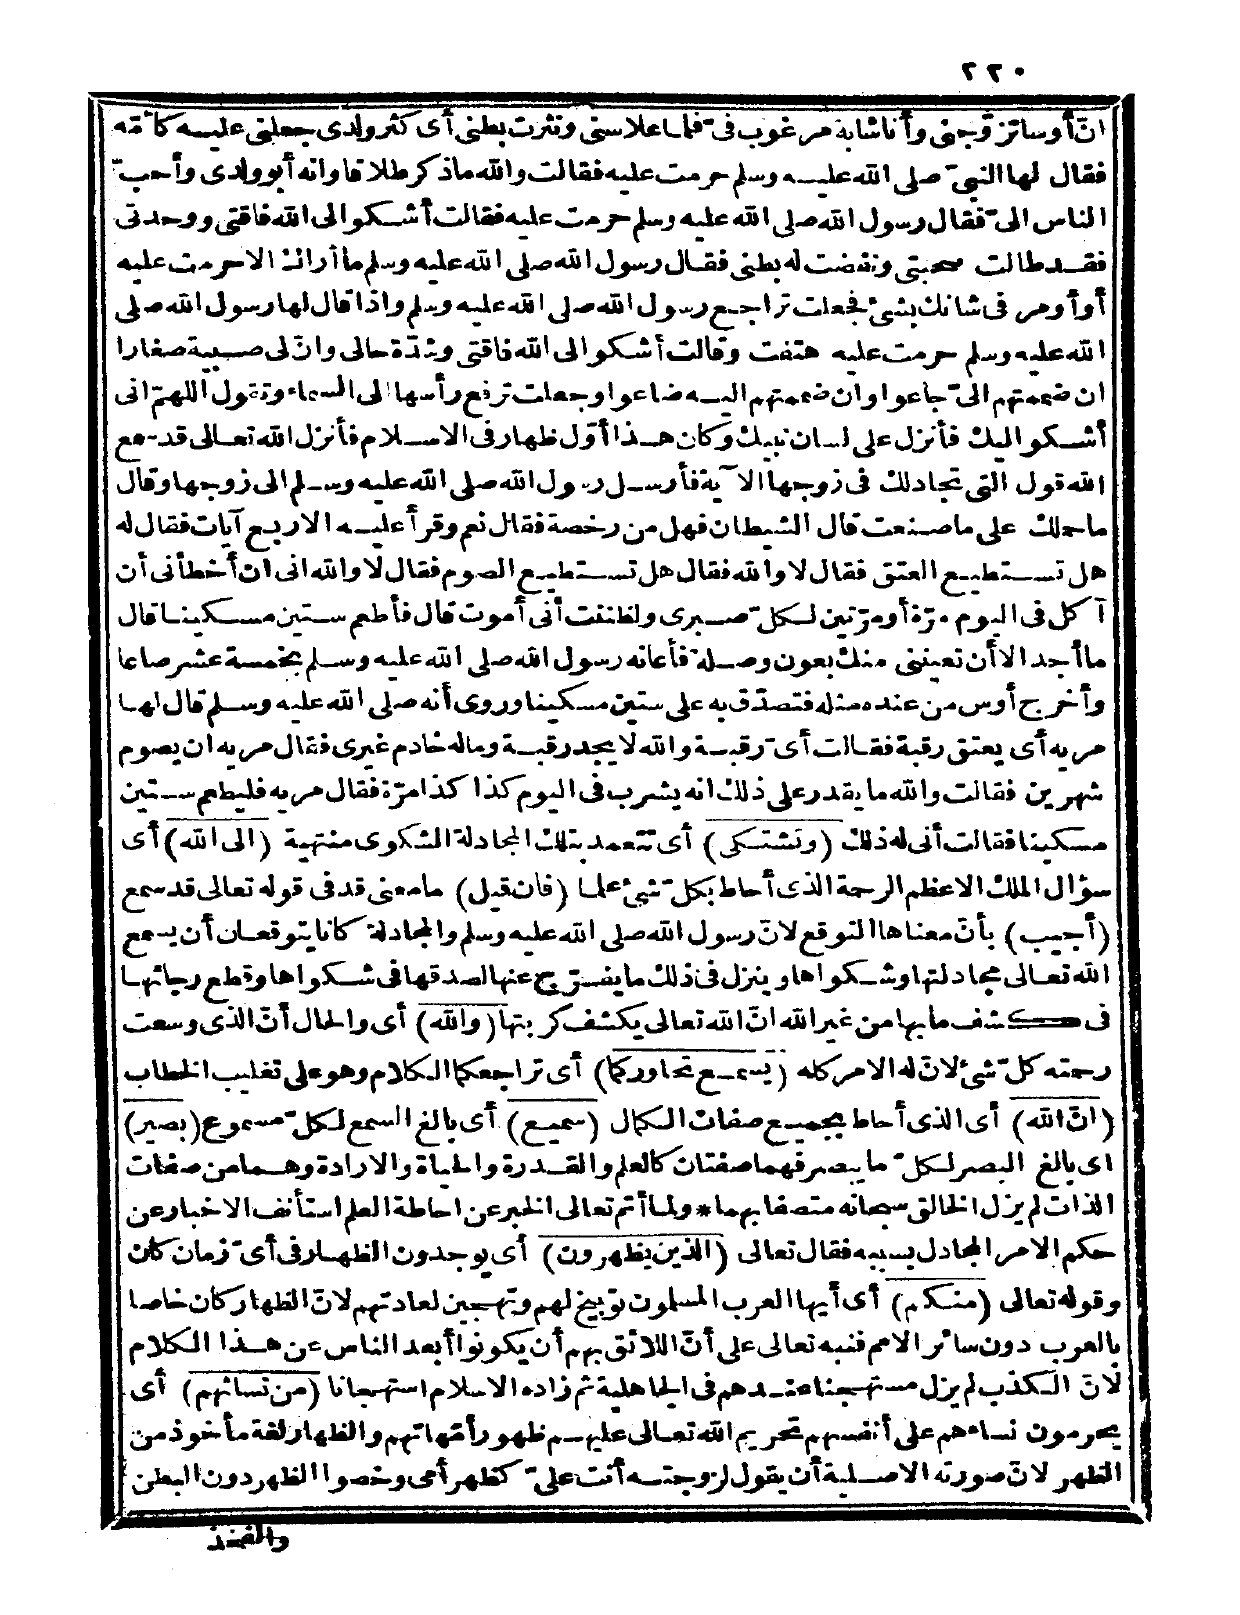 ٢٢٠
انّ أوسا تزوّجنى وأنا شابة مرغوب فىّ فلما علا سنى ونثرت بطنى أى كثر ولدى جعلنى عليه كأمّه
فقال لها النبىّ صلى الله عليه وسلم حرمت عليه فقالت والله ماذكر طلاقا وانه أبو ولدى وأحبّ
الناس الىّ فقال رسول الله صلى الله عليه وسلم حرمت عليه فقالت أشكو الى الله فاقتى ووحدتى
فقد طالت صحبتى ونفضت له بطنى فقال رسول الله صلى الله عليه وسلم ما أراك الا حرمت عليه
أو أومر فى شانك بشئ فجعلت تراجع رسول الله صلى الله عليه وسلم واذا قال لها رسول الله صلى
الله عليه وسلم حرمت عليه هتفت وقالت أشكو الى الله فاقتى وشدّة حالى وانّ لى صبية صغارا
ان ضممتهم الىّ جاعوا وان ضممتهم اليه ضاعوا وجعلت ترفع رأسها الى السماء وتقول اللهمّ انى
أشكو اليك فأنزل على لسان نبيك وكان هذا أوّل ظهار فى الاسلام فأنزل الله تعالى قد سمع
الله قول التى تجادلك فى زوجها الآية فأرسل رسول الله صلى الله عليه وسلم الى زوجها وقال
ماحملك على ماصنعت قال الشيطان فهل من رخصة فقال نعم وقرأ عليه الاربع آيات فقال له
هل تستطيع العتق فقال لا والله فقال هل تستطيع الصوم فقال لا والله انى ان أخطأنى أن
آكل فى اليوم مرّة أو مرّتين لكلّ صبرى ولظننت أنى أموت قال فأطعم ستين مسكينا قال
ما أجد الا أن تعيننى منك بعون وصلة فأعانه رسول الله صلى الله عليه وسلم بخمسة عشر صاعا
وأخرج أوس من عنده مثله فتصدّق به على ستين مسكينا وروى أنه صلى الله عليه وسلم قال لها
مريه أى يعتق رقبة فقالت أىّ رقبة والله لا يجد رقبة وماله خادم غيرى فقال مريه ان يصوم
شهرين فقالت والله ما يقدر على ذلك انه يشرب فى اليوم كذا كذا مرّة فقال مريه فليطعم ستين
مسكينا فقالت أنى له ذلك (وتشتكى) أى تتعمد بتلك المجادلة الشكوى منتهية (الى الله) أى
سؤال الملك الاعظم الرحمة الذى أحاط بكلّ شئ علما (فان قيل) مامعنى قد فى قوله تعالى قد سمع
(أجيب) بأنّ معناها التوقع لانّ رسول الله صلى الله عليه وسلم والمجادلة كانا يتوقعان أن يسمع
الله تعالى مجادلتها وشكواها وينزل فى ذلك ما يفرّج عنها لصدقها فى شكواها وقطع رجائها
فى كشف مابها من غير الله انّ الله تعالى يكشف كربتها (والله) أى والحال أنّ الذى وسعت
رحمته كلّ شئ لانّ له الامر كله (يسمع تحاوركما) أى تراجعكما الكلام وهو على تغليب الخطاب
(انّ الله) أى الذى أحاط بجميع صفات الكمال (سميع) أى بالغ السمع لكلّ مسموع (بصير)
اى بالغ البصر لكلّ ما يبصر فهما صفتان كالعلم والقدرة والحياة والارادة وهما من صفات
الذات لم يزل الخالق سبحانه متصفا بهما * ولما أتم تعالى الخبر عن احاطة العلم استأنف الاخبار عن
حكم الامر المجادل بسببه فقال تعالى (الذين يظهرون) أى يوجدون الظهار فى أىّ زمان كان
وقوله تعالى (منكم) أى أيها العرب المسلمون توبيخ لهم وتهجين لعادتهم لانّ الظهار كان خاصا
بالعرب دون سائر الامم فنبه تعالى على أنّ اللائق بهم أن يكونوا أبعد الناس عن هذا الكلام
لانّ الكذب لم يزل مستهجنا عندهم فى الجاهلية ثم زاده الاسلام استهجانا (من نسائهم) أى
يحرمون نساءهم على أنفسهم تحريم الله تعالى عليهم ظهور أمّهاتهم والظهار لغة مأخوذ من
الظهر لانّ صورته الاصلية أن يقول لزوجته أنت علىّ كظهر أمى وخصوا الظهر دون البطن
والفخذ